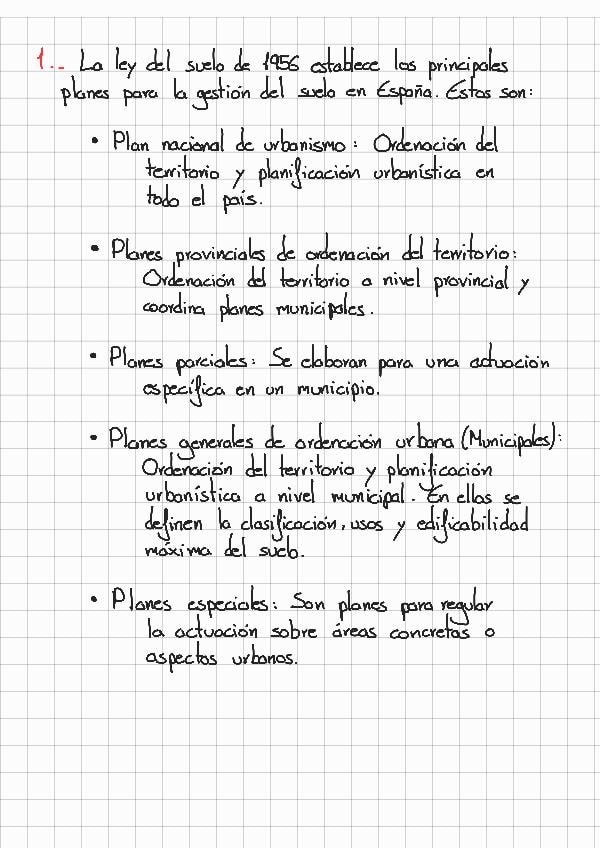 1.- La ley del suelo de 1956 establece los principales
planes para la gestión del suelo en España. Estos son:
• Plan nacional de urbanismo: Ordenación del
territorio y planificación urbanística en
todo el país.
• Planes provinciales de ordenación del territorio:
Ordenación del territorio a nivel provincial y
coordina planes municipales.
• Planes parciales: Se elaboran para una actuación
específica en un municipio.
• Planes generales de ordenación urbana (Municipales):
Ordenación del territorio y planificación
urbanística a nivel municipal. En ellos se
definen la clasificación, usos y edificabilidad
máxima del suelo.
• Planes especiales: Son planes para regular
la actuación sobre áreas concretas o
aspectos urbanos.